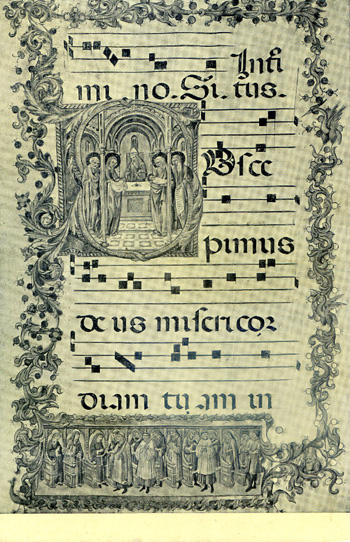 mi no. Si. tus.
SVsce
pimus
de us misericor
diam tu am in